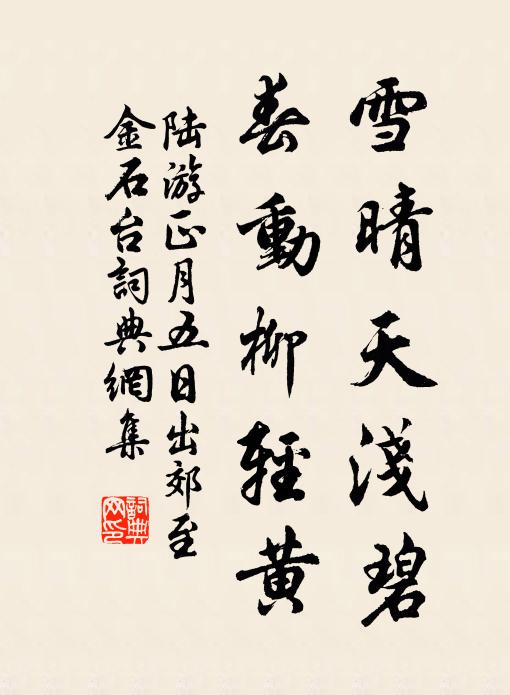 雪晴天淺碧
春動柳輕黃
陆游正月五日出郊至
金石台詞典網集
詞典
网印